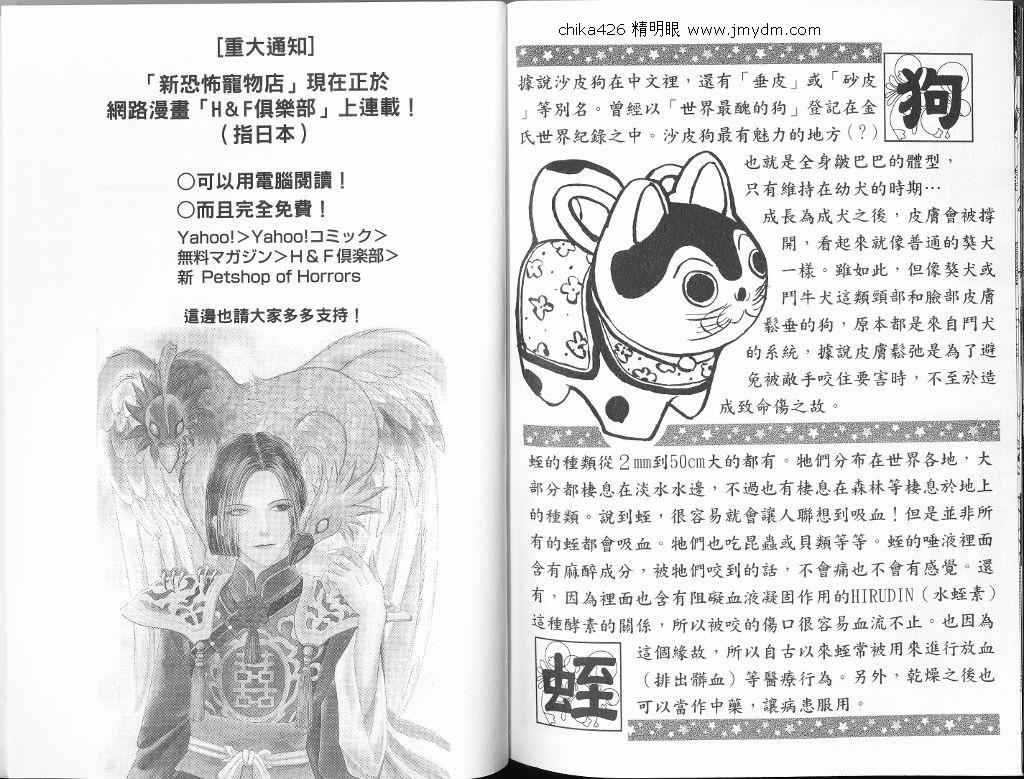 chika426 精明眼 www.jmydm.com
[重大通知]
「新恐怖寵物店」現在正於
網路漫畫「H&F俱樂部」上連載！
（指日本）
○可以用電腦閱讀！
○而且完全免費！
Yahoo!>Yahoo!コミック>
無料マガジン>H&F倶楽部>
新 Petshop of Horrors
這邊也請大家多多支持！
狗
據說沙皮狗在中文裡，還有「垂皮」或「砂皮
」等別名。曾經以「世界最醜的狗」登記在金
氏世界紀錄之中。沙皮狗最有魅力的地方（？）
也就是全身皺巴巴的體型，
只有維持在幼犬的時期…
成長為成犬之後，皮膚會被撐
開，看起來就像普通的獒犬
一樣。雖如此，但像獒犬或
鬥牛犬這類頸部和臉部皮膚
鬆垂的狗，原本都是來自鬥犬
的系統，據說皮膚鬆弛是為了避
免被敵手咬住要害時，不至於造
成致命傷之故。
蛭的種類從2mm到50cm大的都有。牠們分布在世界各地，大
部分都棲息在淡水水邊，不過也有棲息在森林等棲息於地上
的種類。說到蛭，很容易就會讓人聯想到吸血！但是並非所
有的蛭都會吸血。牠們也吃昆蟲或貝類等等。蛭的唾液裡面
含有麻醉成分，被牠們咬到的話，不會痛也不會有感覺。還
有，因為裡面也含有阻礙血液凝固作用的HIRUDIN（水蛭素）
這種酵素的關係，所以被咬的傷口很容易血流不止。也因為
這個緣故，所以自古以來蛭常被用來進行放血
（排出髒血）等醫療行為。另外，乾燥之後也
可以當作中藥，讓病患服用。
蛭